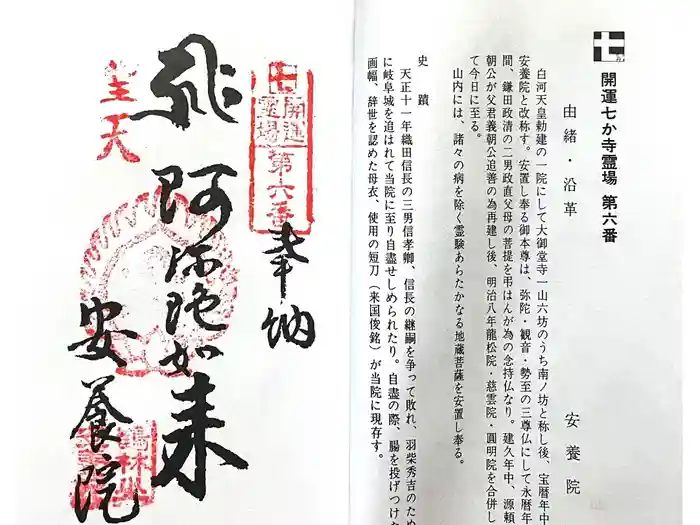 開運七か寺霊場 第六番
由緒・沿革
安養院
白河天皇勅建の一院にして大御堂寺一山六坊のうち南ノ坊と称し後、宝暦年中
安養院と改称す。安置し奉る御本尊は、弥陀・観音・勢至の三尊仏にして永暦年
間、鎌田政清の二男政直父母の菩提を弔はんが為の念持仏なり。建久年中、源頼
朝公が父君義朝公追善の為再建し後、明治八年龍松院・慈雲院・圓明院を合併し
て今日に至る。
山内には、諸々の病を除く霊験あらたかなる地蔵菩薩を安置し奉る。
史蹟
天正十一年織田信長の三男信孝卿、信長の継嗣を争って敗れ、羽柴秀吉のため
に岐阜城を追はれて当院に至り自盡せしめられたり。自盡の際、腸を投げつけた
画幅、辞世を認めた母衣、使用の短刀（来国俊銘）が当院に現存す。
開運
霊場
第六番
奉納
阿弥陀如来
安養院